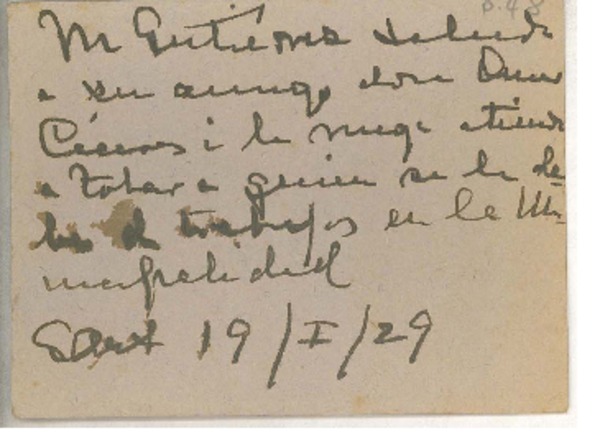 M Gutiérrez saluda
a su amigo don Omer
Cáceres i le ruega atienda
a Tobar a quien se le de
be d trabajos en la Mu
nicipalidad
Sant 19/I/29